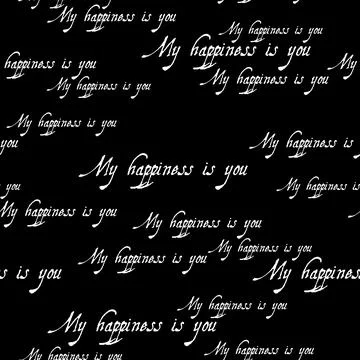 My happiness is you
My happiness is you
My happiness is you
My
happiness is you
My happiness is you
My happiness is you
My happiness is you
My happiness is
you
My happiness is you
My happiness is
you
My happiness is you
My happiness is you
My happiness is you
My happiness is you
s is you
My happiness is you
My happiness
My happiness is you
My happiness is you
My happiness is you
My happiness is you
My happiness is you